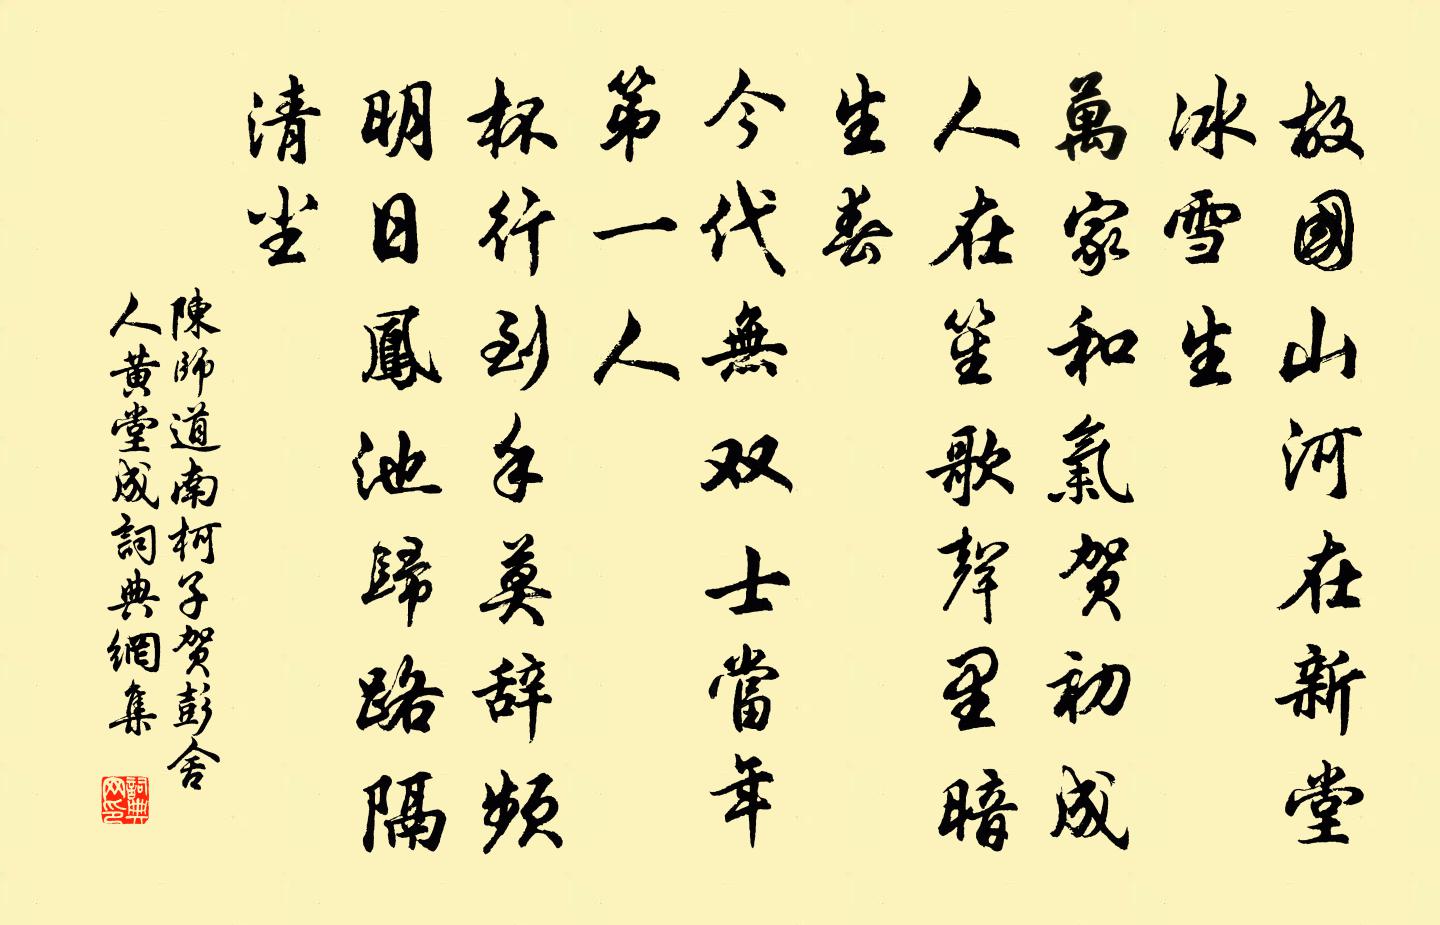 故國山河在新堂
冰雪生
萬家和氣賀初成
人在笙歌聲里暗
生春
今代無双士當年
第一人
杯行到手莫辞頻
明日鳳池歸路隔
清尘
陳師道南柯子贺彭舍
人黄堂成詞典網集
詞典
网印